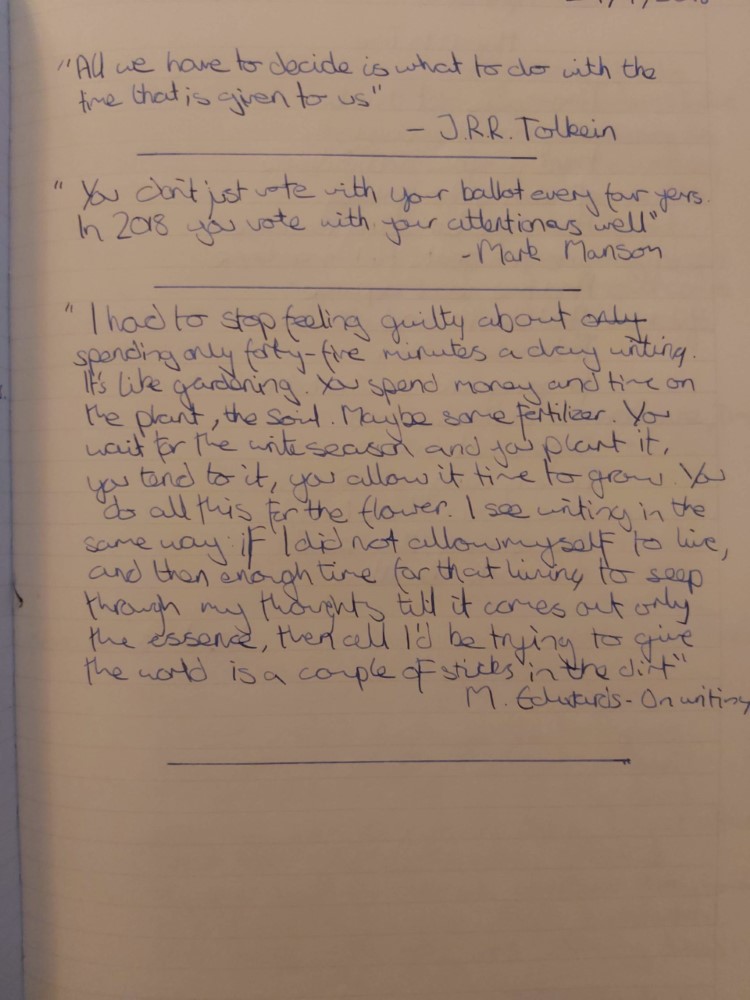 "All we have to decide is what to do with the
time that is given to us"
- J.R.R. Tolkein
" You don't just vote with your ballot every four years.
In 2018 you vote with your attention as well"
- Mark Manson
" I had to stop feeling guilty about only
spending only forty-five minutes a day writing.
It's like gardening. You spend money and time on
the plant, the soul. Maybe some fertilizer. You
wait for the write season and you plant it,
you tend to it, you allow it time to grow. You
do all this for the flower. I see writing in the
same way: if I did not allow myself to live,
and then enough time for that living to seep
through my thoughts till it comes out only
the essence, then all I'd be trying to give
the world is a couple of sticks in the dirt"
M. Edwards - On writing